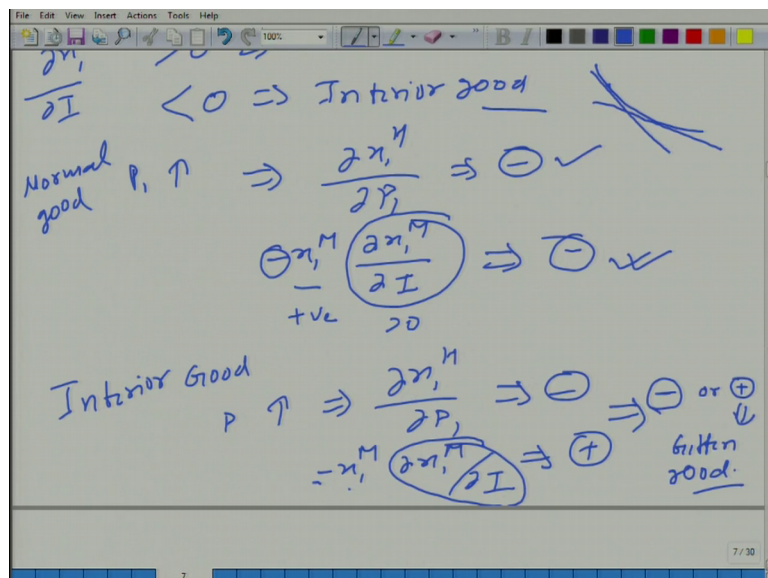 File Edit View Insert Actions Tools Help
100%
∂x₁ >0 ⇒
∂I <0 ⇒ Interior good
Normal good P₁ ↑ ⇒ ∂x₁ᴴ / ∂P₁ ⇒ ⊖ ✓
⊖ x₁ᴹ ∂x₁ᴹ / ∂I ⇒ ⊖ ✓
+ve >0
Interior Good
P ↑ ⇒ ∂x₁ᴴ / ∂P₁ ⇒ ⊖ ⇒ ⊖ or ⊕
- x₁ᴹ ∂x₁ᴹ / ∂I ⇒ ⊕
Giffen
good.
7 / 30
7